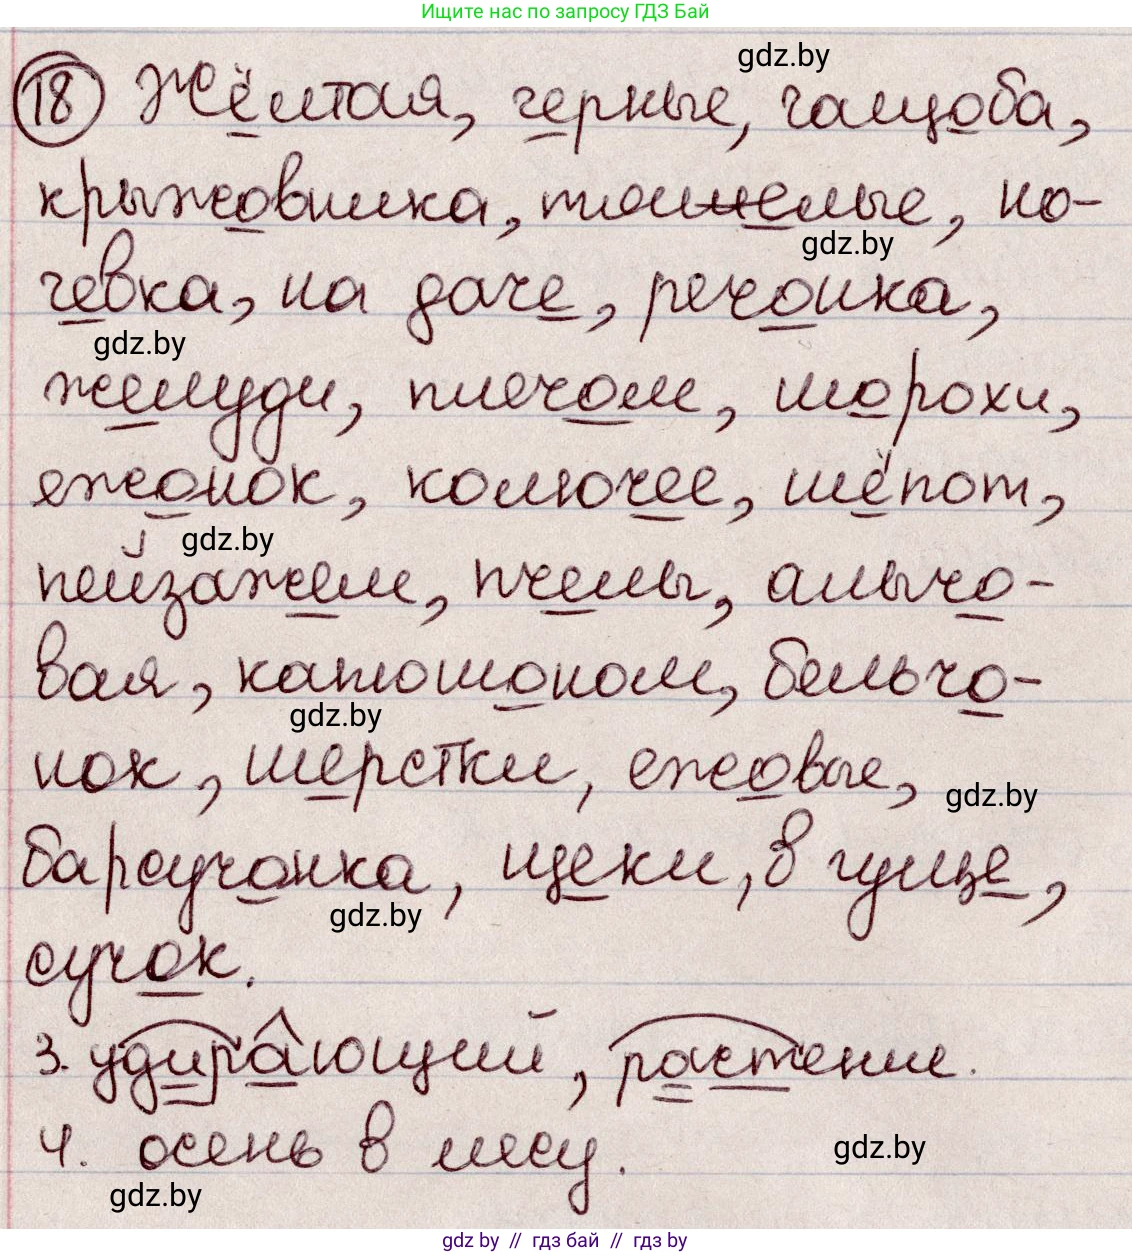 Ищите нас по запросу ГДЗ Бай
gdz.by
18 Жёлтая, черные, чащоба,
крыжовника, тяжелые, но-
gdz.by
чевка, на даче, речонка,
gdz.by
желуди, плечом, шорохи,
ежонок, колючее, шёпот,
gdz.by
пейзажем, пчелы, алычо-
вая, катюшоном, бельчо-
gdz.by
нок, шерстки, ежовые,
gdz.by
барсучонка, щеки, в гуще,
gdz.by
сучок.
3. удирающий, растение.
4. осень в лесу.
gdz.by
gdz.by
gdz.by // гдз бай // гдз by